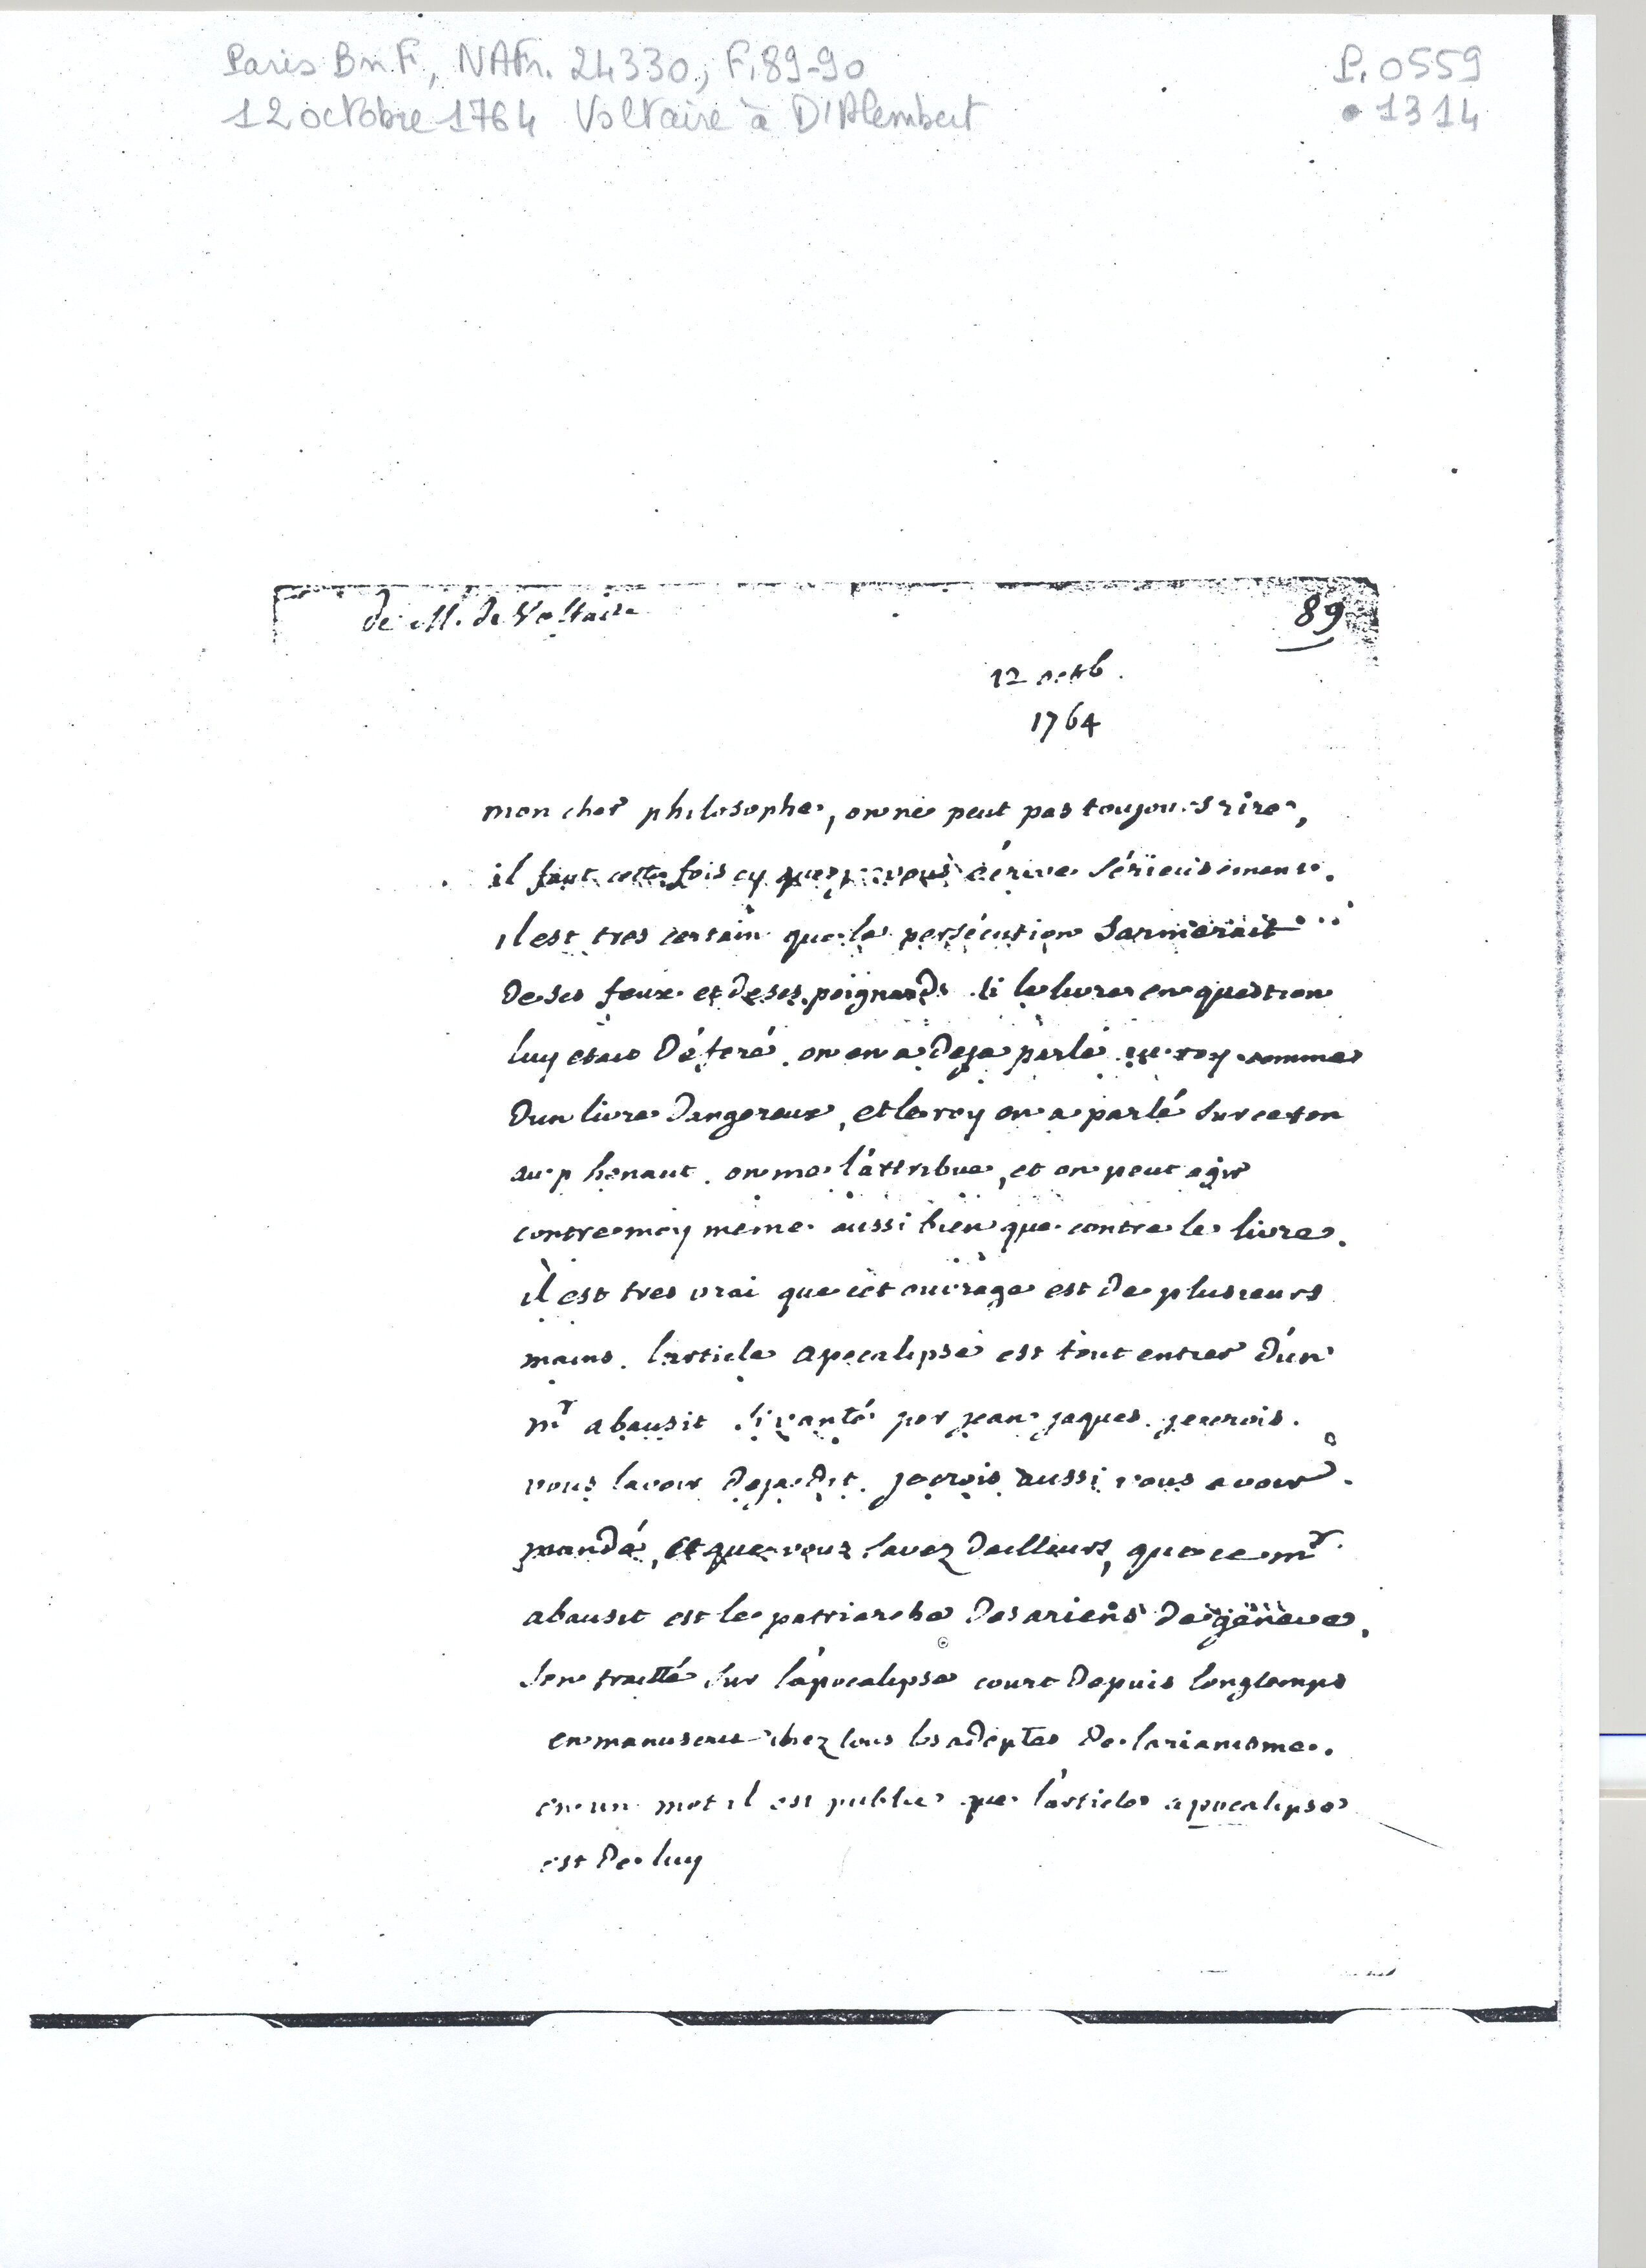 Paris BnF, NAFr. 24330, F.89-90
P. 0559
12 octobre 1764 Voltaire à D'Alembert
1314
de M. de Voltaire
89
12 octb.
1764
mon cher philosophe, on ne peut pas toujours rire,
il faut cette fois cy que je vous écrive sérieusement.
il est tres certain que la persécution s'armerait
de ses feux et de ses poignards si le livre en question
luy etait déferé. on en a deja parlé au roy comme
dun livre dangereux, et le roy en a parlé sur ce ton
au p henaut. on me l'attribue, et on peut agir
contre moy meme aussi bien que contre le livre.
il est tres vrai que cet ouvrage est de plusieurs
mains. l'article apocalipse est tout entier d'un
mr abausit si vanté par jean jaques. je crois
vous lavoir deja dit. je crois aussi vous avoir
mandé, et que vous savez dailleurs, que ce mr
abausit est le patriarche des ariens de geneve.
son traitté sur l'apocalipse court depuis longtemps
en manuscrit chez tous les adeptes de larianisme.
en un mot il est public que l'article apocalipse
est de luy